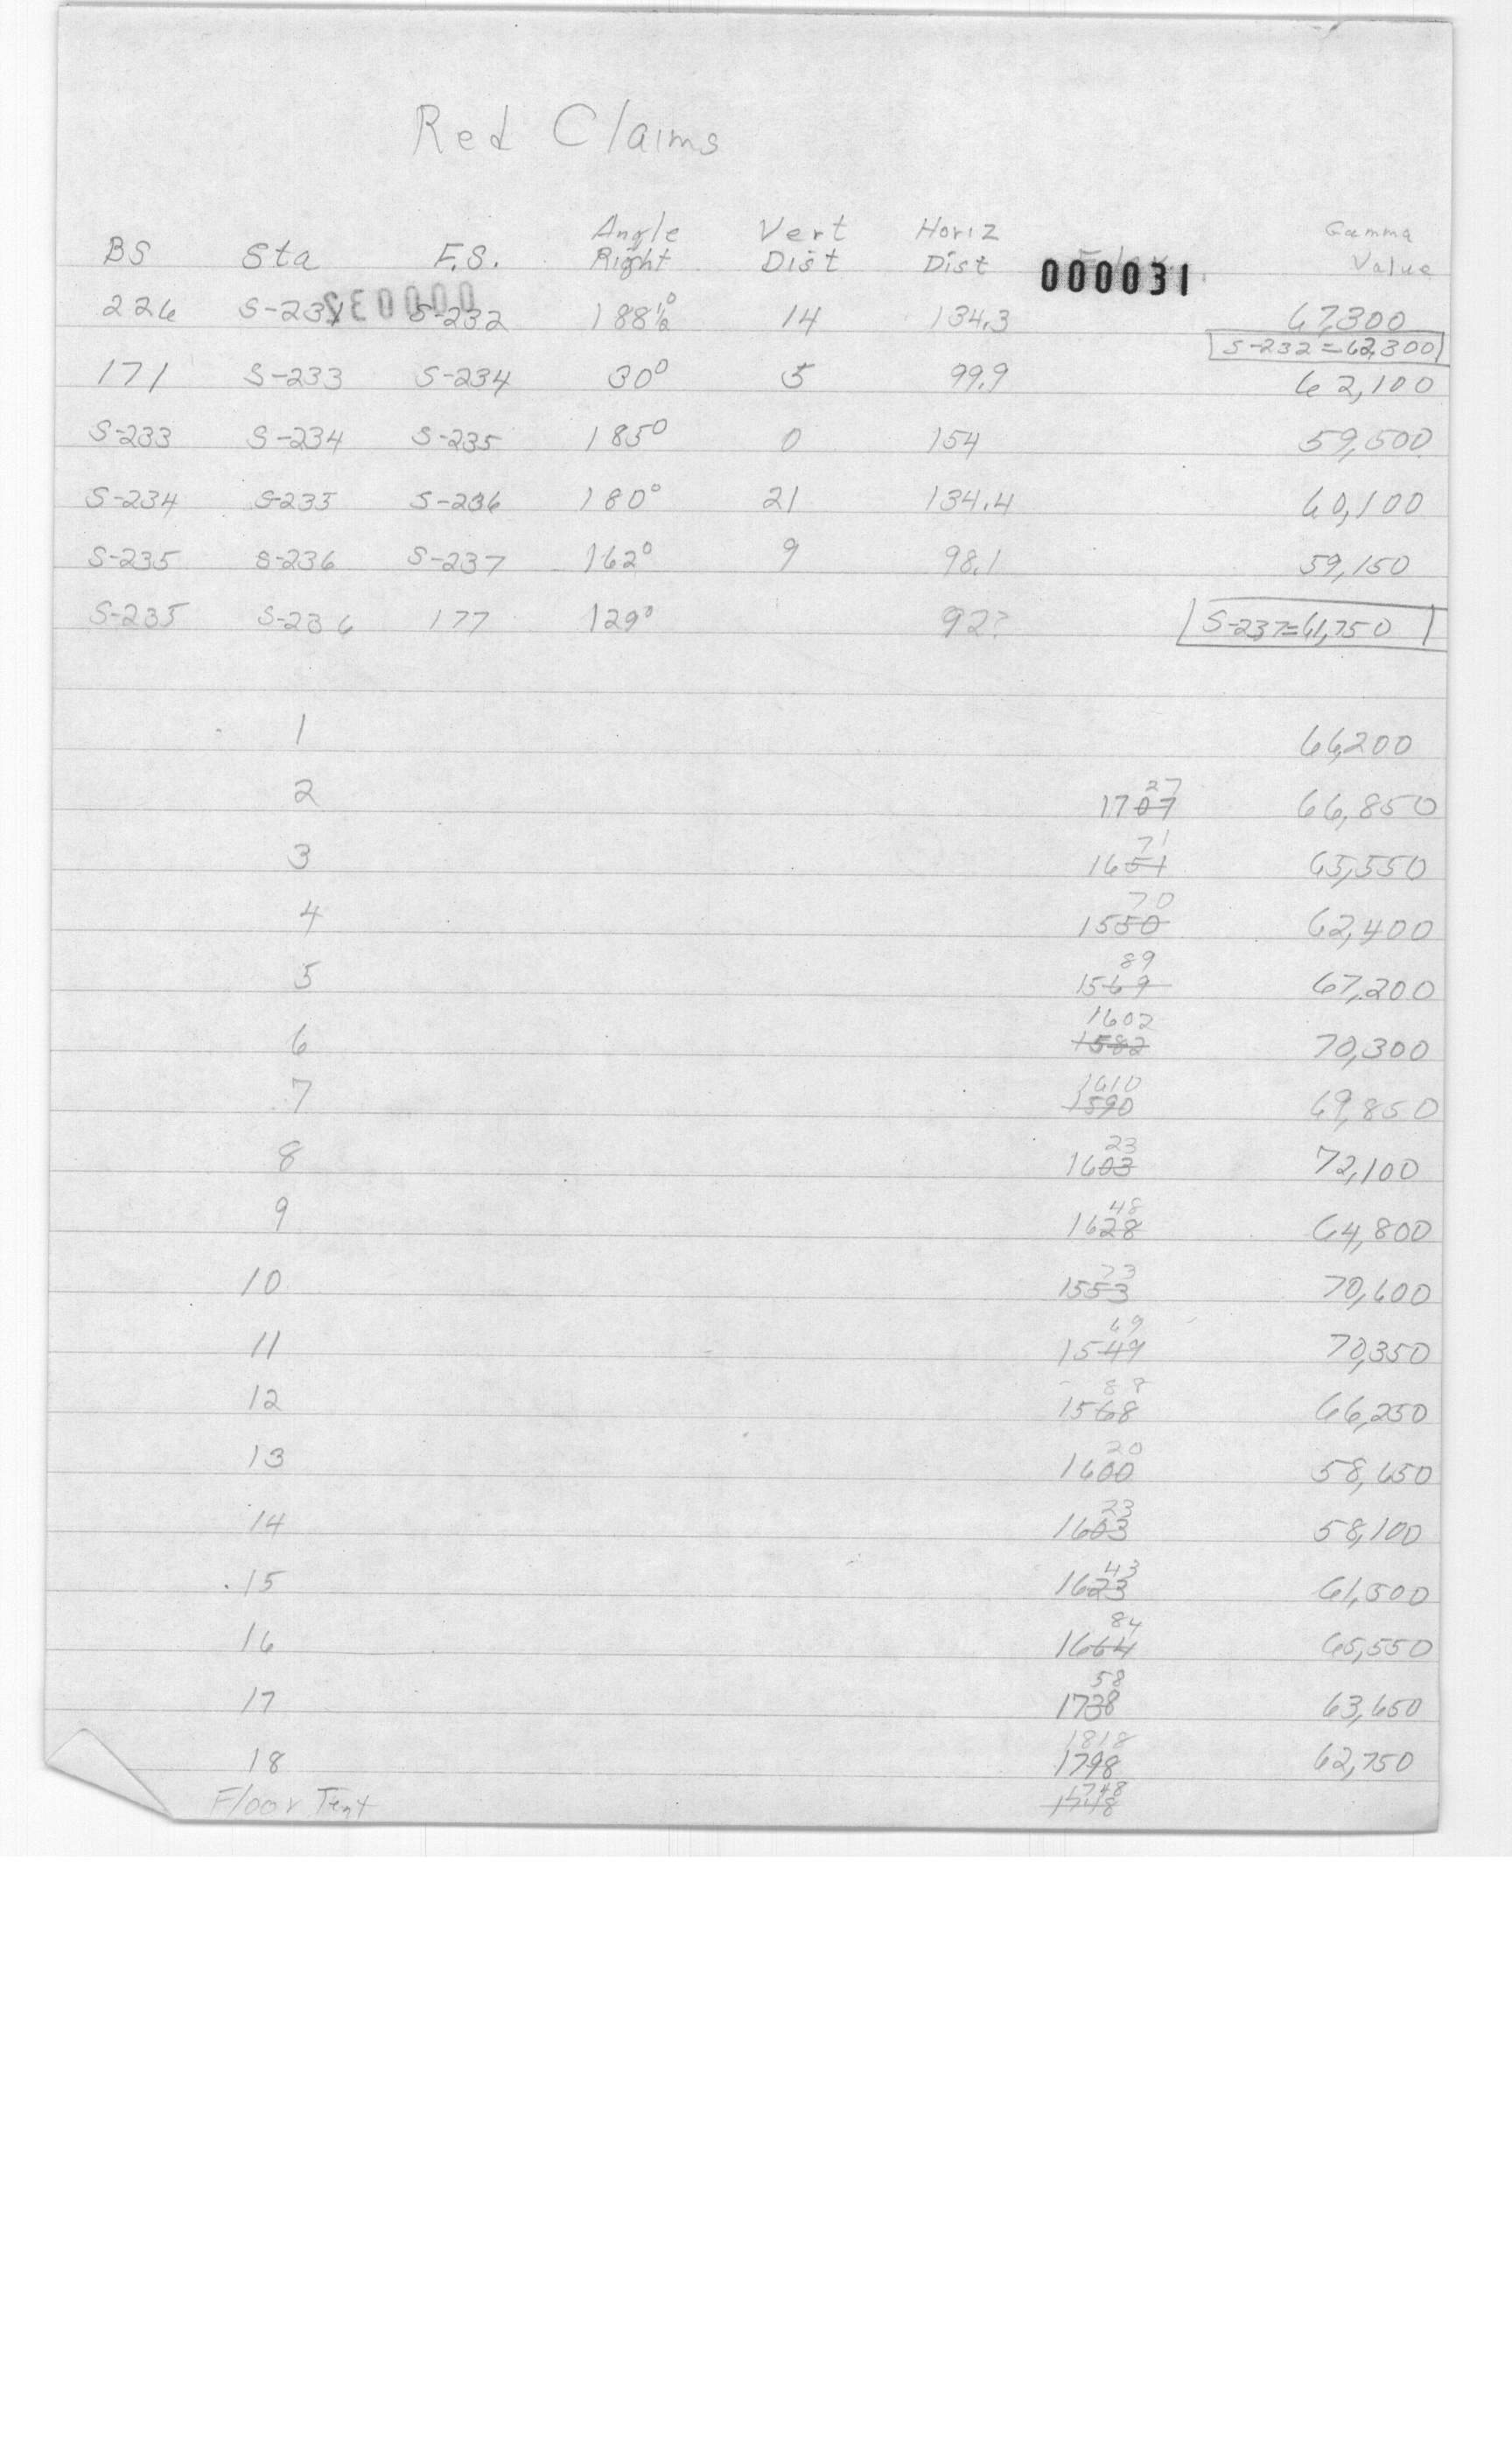 Red Claims
Angle Vert Horiz Gamma
BS Sta F.S. Right Dist Dist Elev. Value
000031
226 S-231 S-232 188½° 14 134.3 67,300
S-232=62,300
171 S-233 S-234 30° 5 99.9 62,100
S-233 S-234 S-235 185° 0 154 59,500
S-234 S-235 S-236 180° 21 134.4 60,100
S-235 S-236 S-237 162° 9 98.1 59,150
S-235 S-236 177 129° 92? S-237=61,750
1 66,200
27
2 1707 66,850
71
3 1651 65,550
70
4 1550 62,400
89
5 1569 67,200
1602
6 1582 70,300
1610
7 1590 69,850
23
8 1603 72,100
48
9 1628 64,800
73
10 1553 70,600
69
11 1549 70,350
88
12 1568 66,250
20
13 1600 58,650
23
14 1603 58,100
43
15 1623 61,500
84
16 1664 65,550
58
17 1738 63,650
1818
18 1798 62,750
1748
Floor Tent